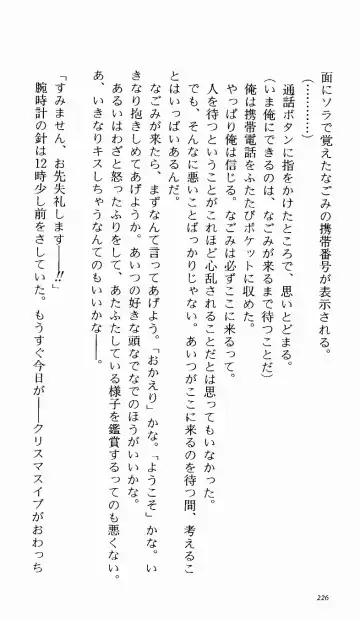 面にソラで覚えたなごみの携帯番号が表示される。
(…………)
通話ボタンに指をかけたところで、思いとどまる。
(いま俺にできるのは、なごみが来るまで待つことだ)
俺は携帯電話をふたたびポケットに収めた。
やっぱり俺は信じる。なごみは必ずここに来るって。
人を待つということがこれほど心乱されることだとは思ってもいなかった。
でも、そんなに悪いことばっかりじゃない。あいつがここに来るのを待つ間、考えるこ
とはいっぱいあるんだ。
なごみが来たら、まずなんて言ってあげよう。「おかえり」かな。「ようこそ」かな。い
きなり抱きしめてあげようか。あいつの好きな頭なでなでのほうがいいかな。
あるいはわざと怒ったふりをして、あたふたしている様子を鑑賞するってのも悪くない。
あ、いきなりキスしちゃうなんてのもいいかな――。
「すみません、お先失礼します――!!」
腕時計の針は12時少し前をさしていた。もうすぐ今日が――クリスマスイブがおわっち
226